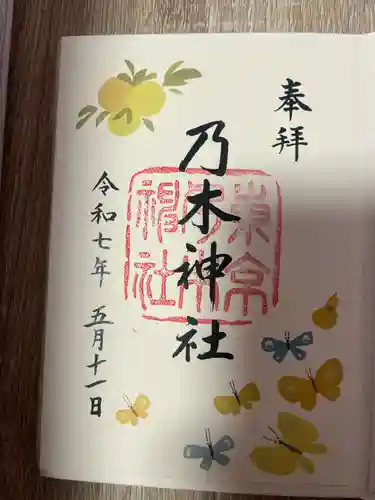 奉拝
乃木神社
東京乃木神社
令和七年 五月十一日